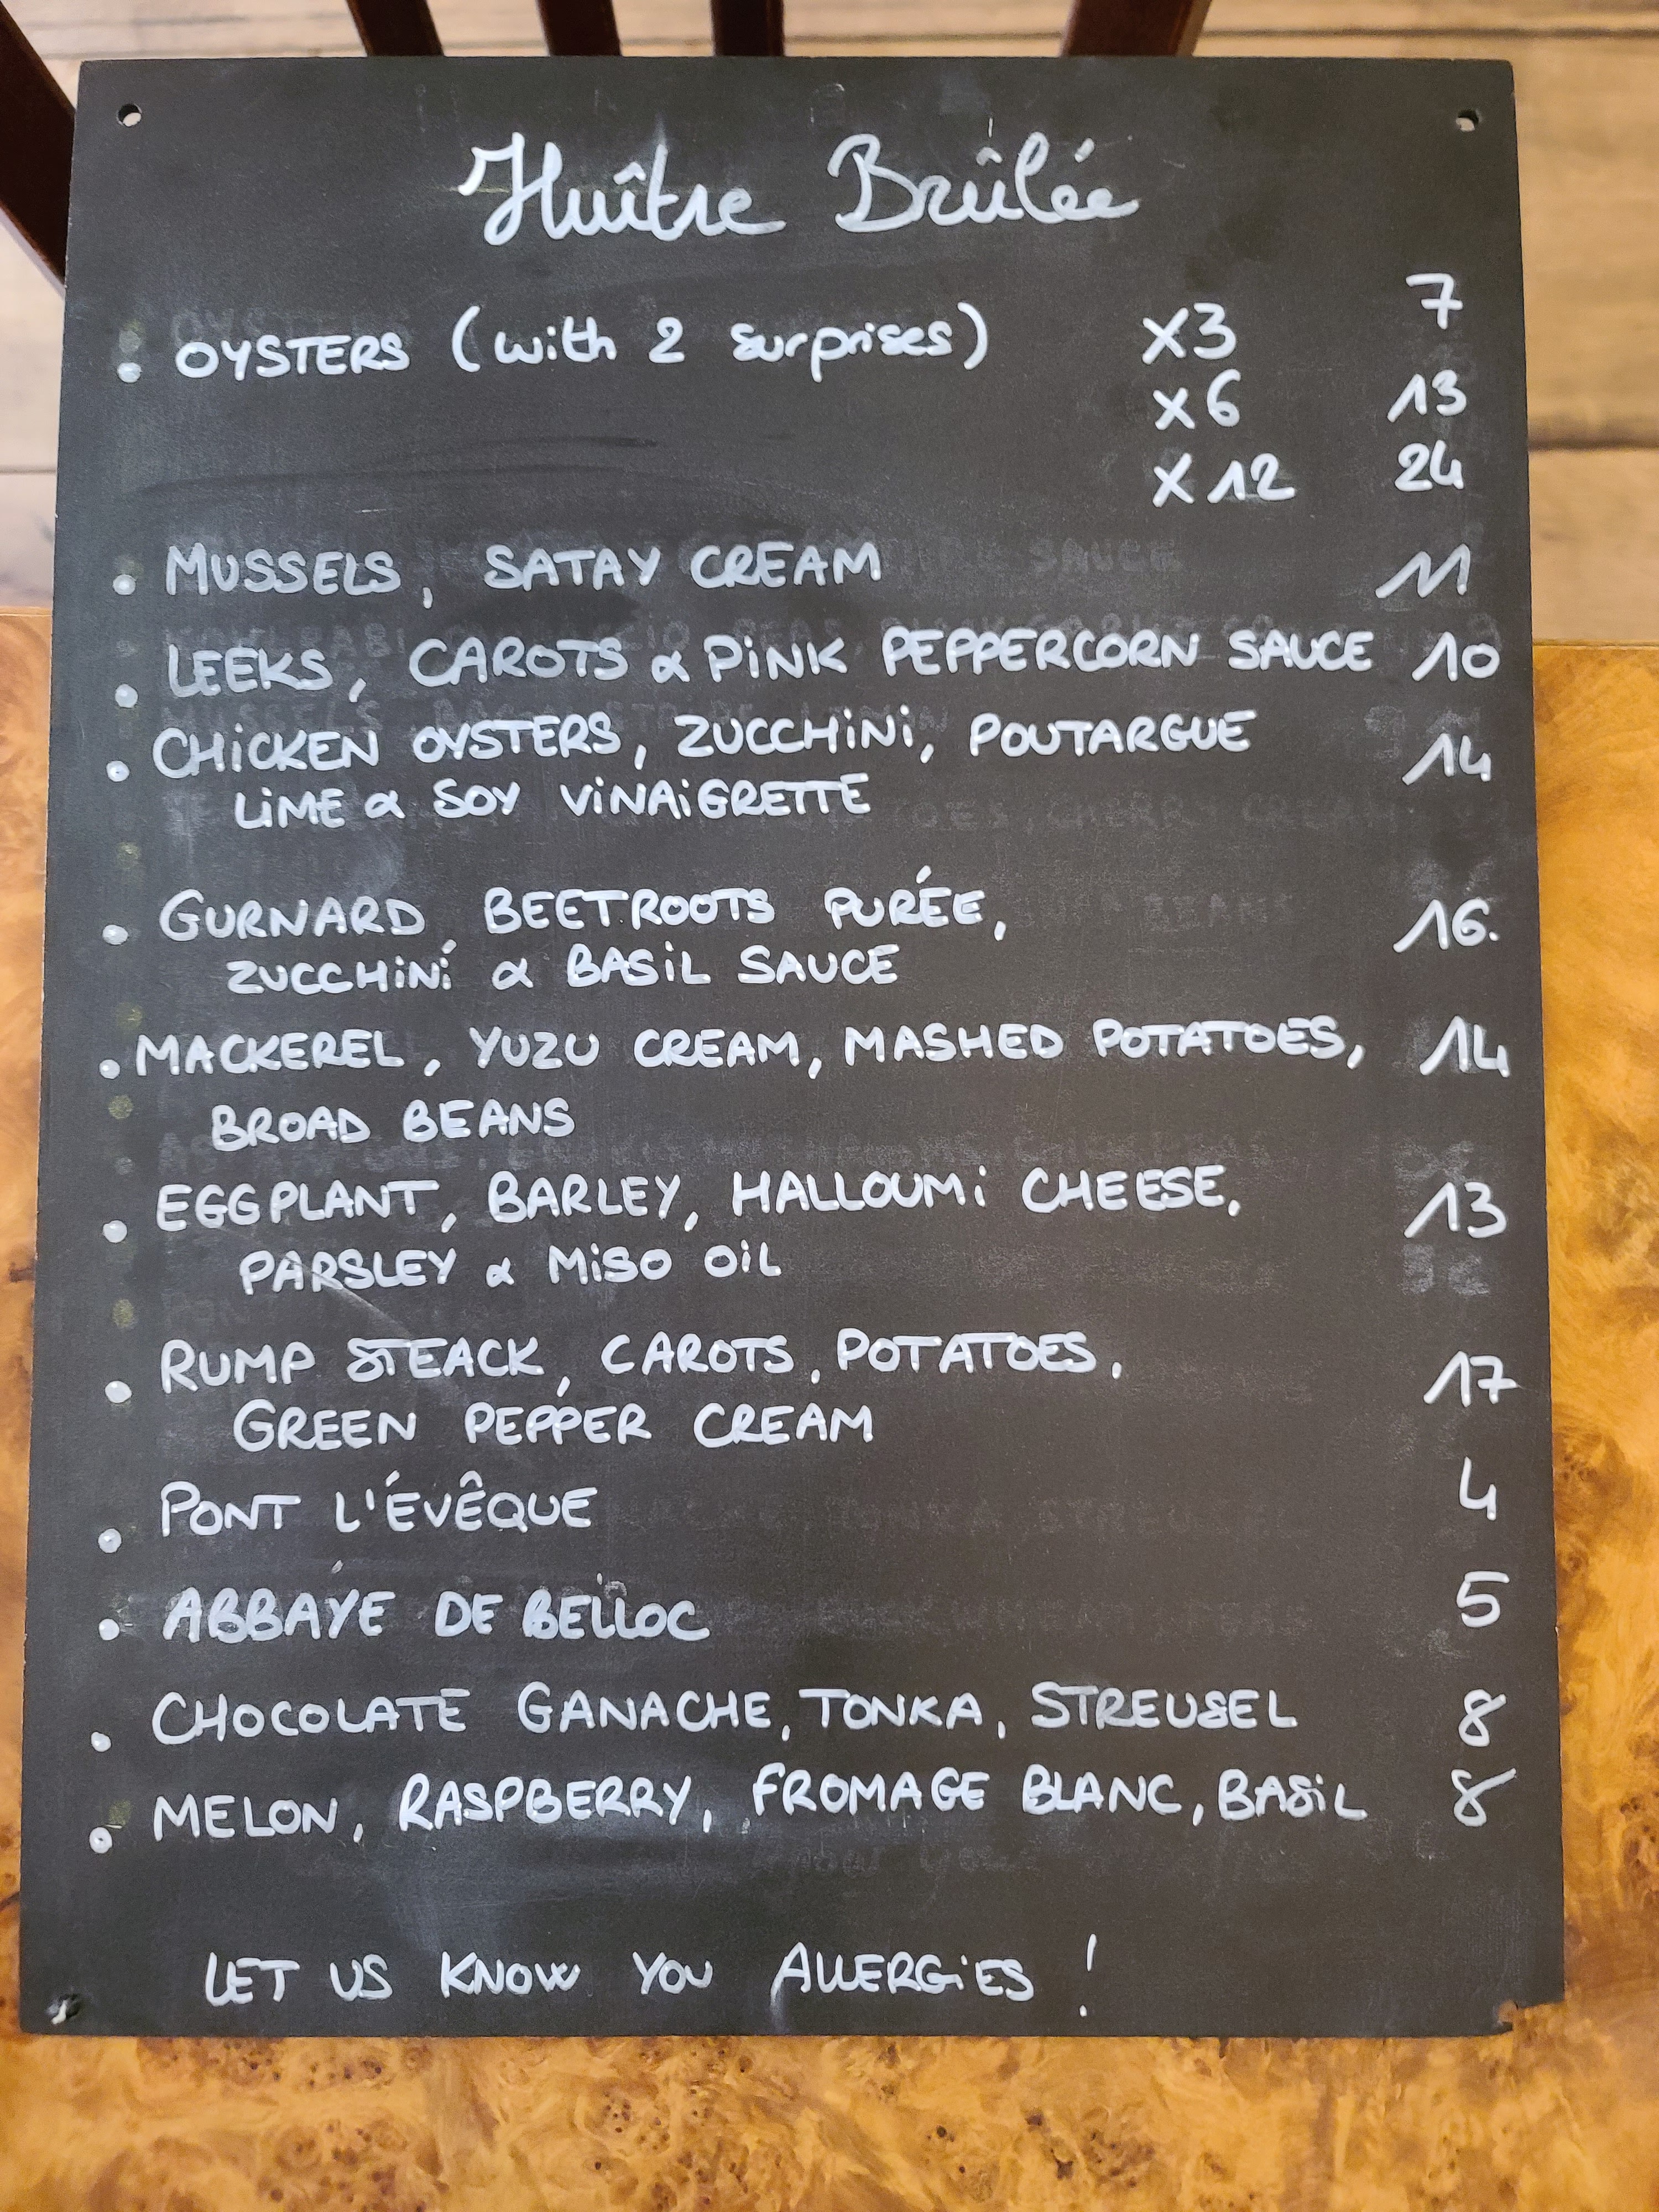 Huître Brûlée
• OYSTERS (with 2 surprises) X3 7
X6 13
X12 24
• MUSSELS, SATAY CREAM 11
• LEEKS, CAROTS & PINK PEPPERCORN SAUCE 10
• CHICKEN OYSTERS, ZUCCHINI, POUTARGUE 14
LIME & SOY VINAIGRETTE
• GURNARD BEETROOTS PURÉE, 16.
ZUCCHINI & BASIL SAUCE
• MACKEREL, YUZU CREAM, MASHED POTATOES, 14
BROAD BEANS
• EGGPLANT, BARLEY, HALLOUMI CHEESE, 13
PARSLEY & MISO OIL
• RUMP STEACK, CAROTS, POTATOES, 17
GREEN PEPPER CREAM
• PONT L'ÉVÊQUE 4
• ABBAYE DE BELLOC 5
• CHOCOLATE GANACHE, TONKA, STREUSEL 8
• MELON, RASPBERRY, FROMAGE BLANC, BASIL 8
LET US KNOW YOU ALLERGIES !